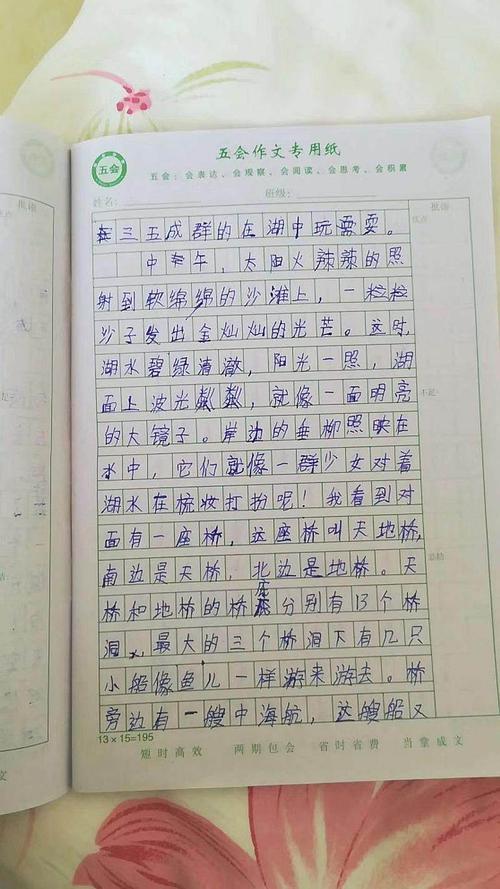 五会作文专用纸
五会
五会：会表达、会观察、会阅读、会思考、会积累
姓名： 班级： 批语
优点
三五成群的在湖中玩耍耍。
中午，太阳火辣辣的照
射到软绵绵的沙滩上，一粒粒
沙子发出金灿灿的光芒。这时，
湖水碧绿清澈，阳光一照，湖
面上波光粼粼，就像一面明亮
不足
的大镜子。岸边的垂柳照映在
水中，它们就像一群少女对着
湖水在梳妆打扮呢！我看到对
面有一座桥，这座桥叫天地桥，
总结
南边是天桥，北边是地桥。天
桥和地桥的桥底分别有13个桥
洞，最大的三个桥洞下有几只
小船像鱼儿一样游来游去。桥
旁边有一艘中海航，这艘船又
13×15=195
短时高效 两期包会 省时省费 当堂成文